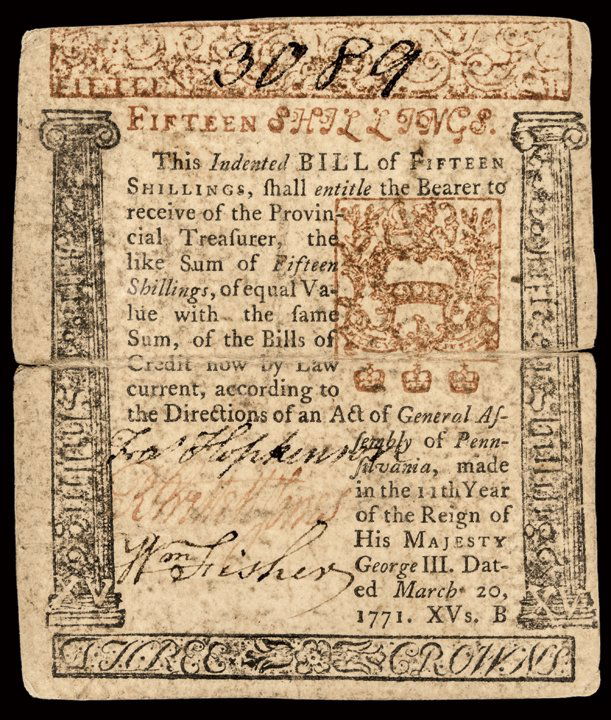 3089
FIFTEEN
FIFTEEN SHILLINGS.
This Indented BILL of FIFTEEN
SHILLINGS, ſhall entitle the Bearer to
receive of the Provin-
cial Treaſurer, the
like Sum of Fifteen
Shillings, of equal Va-
lue with the ſame
Sum, of the Bills of
Credit now by Law
current, according to
the Directions of an Act of General Aſ-
ſembly of Penn-
ſilvania, made
in the 11th Year
of the Reign of
His MAJESTY
George III. Dat-
ed March 20,
1771. XVs. B
Fras Hopkinson
Wm Fisher
THREE CROWNS